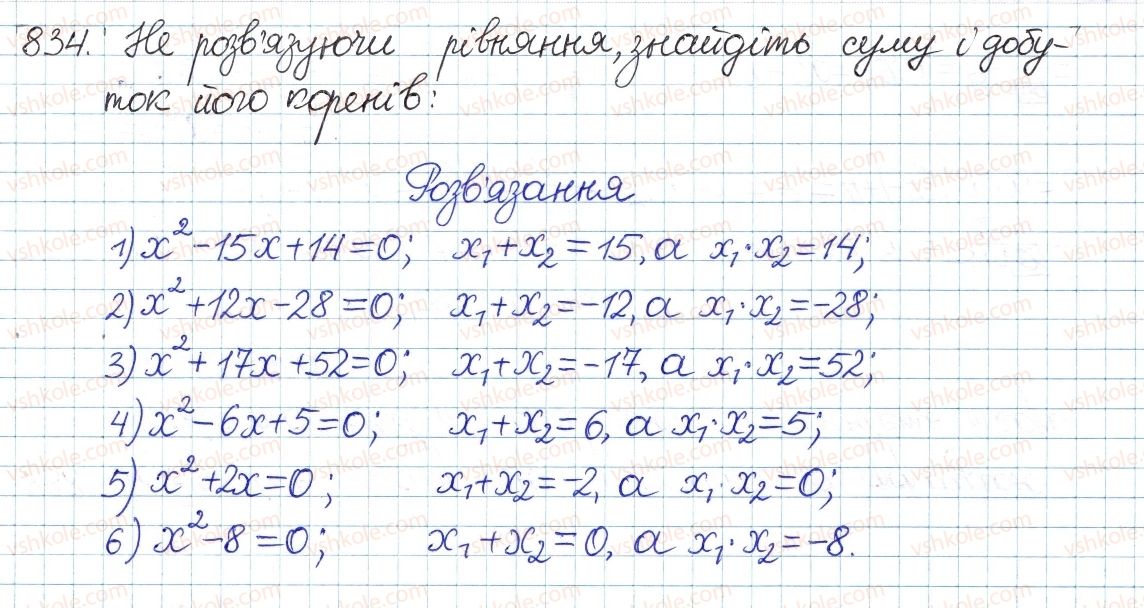 834. Не розв'язуючи рівняння, знайдіть суму і добу-
ток його коренів:
Розв'язання
1) x² - 15x + 14 = 0; x₁ + x₂ = 15, а x₁ · x₂ = 14;
2) x² + 12x - 28 = 0; x₁ + x₂ = -12, а x₁ · x₂ = -28;
3) x² + 17x + 52 = 0; x₁ + x₂ = -17, а x₁ · x₂ = 52;
4) x² - 6x + 5 = 0; x₁ + x₂ = 6, а x₁ · x₂ = 5;
5) x² + 2x = 0; x₁ + x₂ = -2, а x₁ · x₂ = 0;
6) x² - 8 = 0; x₁ + x₂ = 0, а x₁ · x₂ = -8.
vshkole.com